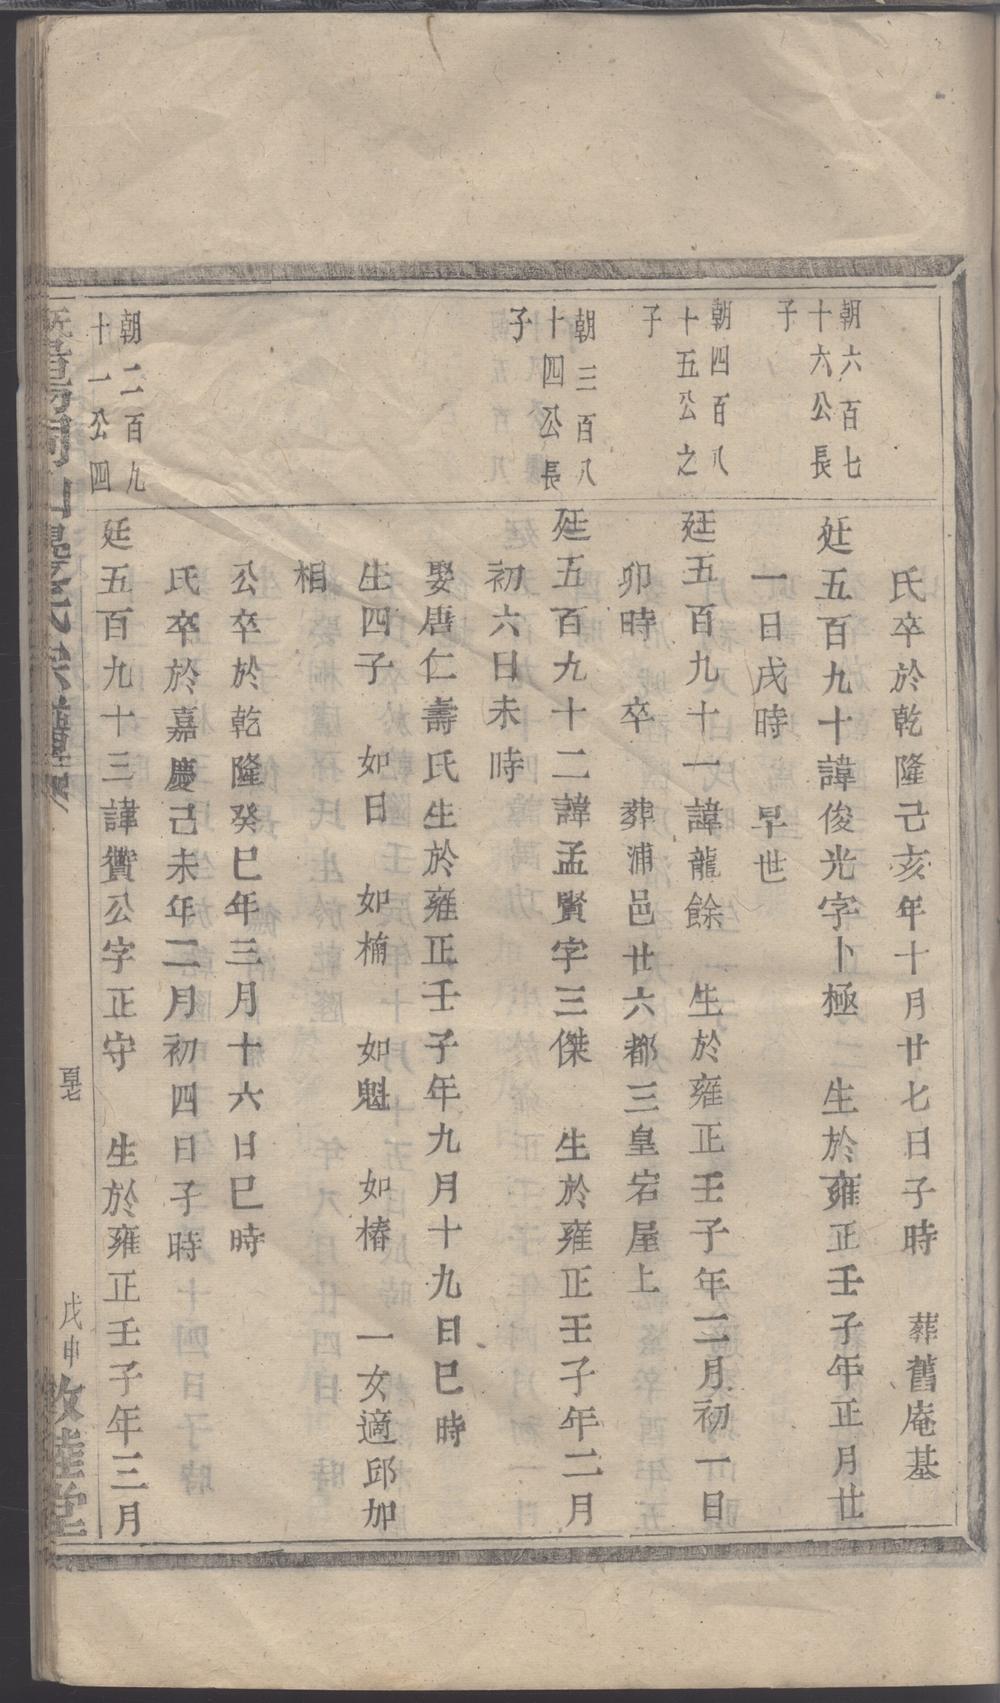 氏卒於乾隆己亥年十月廿七日子時　葬舊庵基
朝六百七
十六公長
子
廷五百九十諱俊光字卜極　生於雍正壬子年正月廿
一日戌時　早世
朝四百八
十五公之
子
廷五百九十一諱龍餘　生於雍正壬子年二月初一日
卯時　卒　葬浦邑廿六都三皇宕屋上
朝三百八
十四公長
子
廷五百九十二諱孟賢字三傑　生於雍正壬子年二月
初六日未時
娶唐仁壽氏生於雍正壬子年九月十九日巳時
生四子　如日　如楠　如魁　如椿　一女適邱加
相
公卒於乾隆癸巳年三月十六日巳時
氏卒於嘉慶己未年二月初四日子時
朝二百九
十一公四
廷五百九十三諱贊公字正守　生於雍正壬子年三月
戊申
敦睦堂